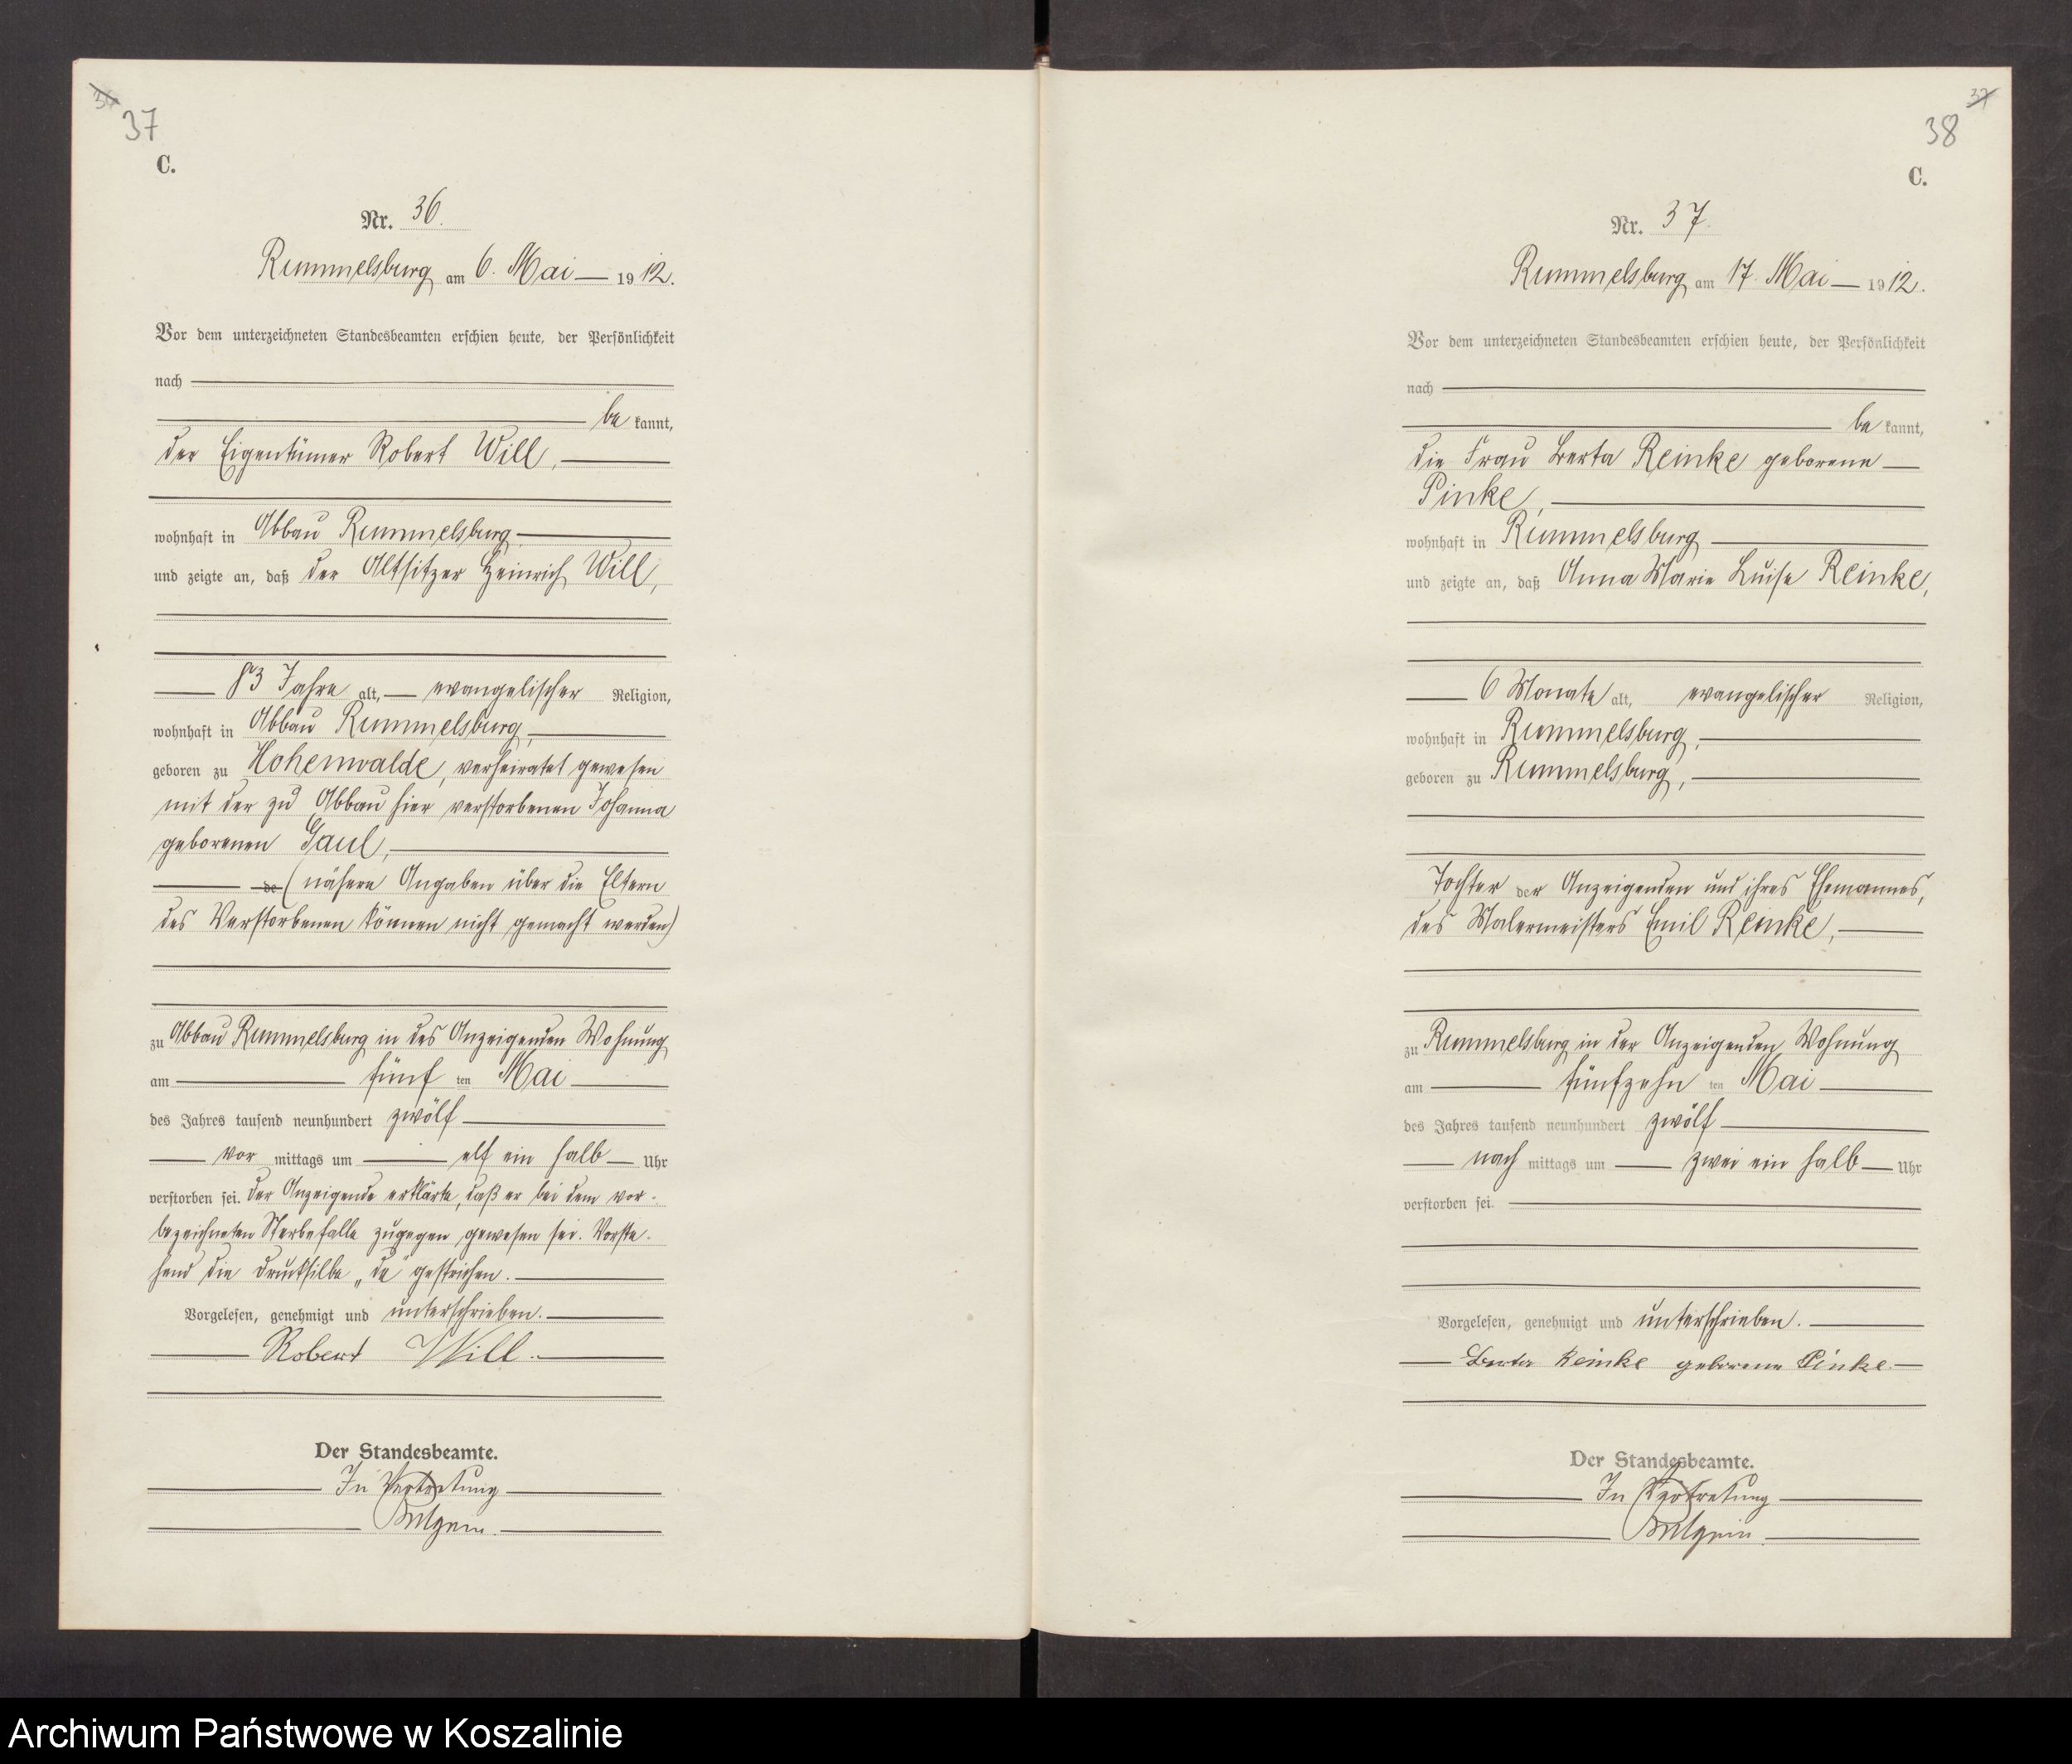 36
37
C.
Nr. 36.
Rummelsburg am 6. Mai 1912.
Vor dem unterzeichneten Standesbeamten erschien heute, der Persönlichkeit
nach
be kannt,
der Eigentümer Robert Will,
wohnhaft in Abbau Rummelsburg
und zeigte an, daß der Altsitzer Heinrich Will,
83 Jahre alt, evangelischer Religion,
wohnhaft in Abbau Rummelsburg,
geboren zu Hohenwalde, verheiratet gewesen
mit der zu Abbau hier verstorbenen Johanna
geborenen Gaul,
de (nähere Angaben über die Eltern
des Verstorbenen können nicht gemacht werden)
zu Abbau Rummelsburg in des Anzeigenden Wohnung
am fünf ten Mai
des Jahres tausend neunhundert zwölf
vor mittags um elf ein halb Uhr
verstorben sei. Der Anzeigende erklärte, daß er bei dem vor-
bezeichneten Sterbefalle zugegen gewesen sei. Vorste-
hend die Drucksilbe „de" gestrichen.
Vorgelesen, genehmigt und unterschrieben.
Robert Will.
Der Standesbeamte.
In Vertretung
37
38
C.
Nr. 37.
Rummelsburg am 17. Mai 1912.
Vor dem unterzeichneten Standesbeamten erschien heute, der Persönlichkeit
nach
be kannt,
die Frau Berta Reinke geborene
Pinke,
wohnhaft in Rummelsburg
und zeigte an, daß Anna Marie Luise Reinke,
6 Monate alt, evangelischer Religion,
wohnhaft in Rummelsburg,
geboren zu Rummelsburg,
Tochter der Anzeigenden und ihres Ehemannes,
des Malermeisters Emil Reinke,
zu Rummelsburg in der Anzeigenden Wohnung
am fünfzehn ten Mai
des Jahres tausend neunhundert zwölf
nach mittags um zwei ein halb Uhr
verstorben sei.
Vorgelesen, genehmigt und unterschrieben.
Berta Reinke geborene Pinke
Der Standesbeamte.
In Vertretung
Archiwum Państwowe w Koszalinie